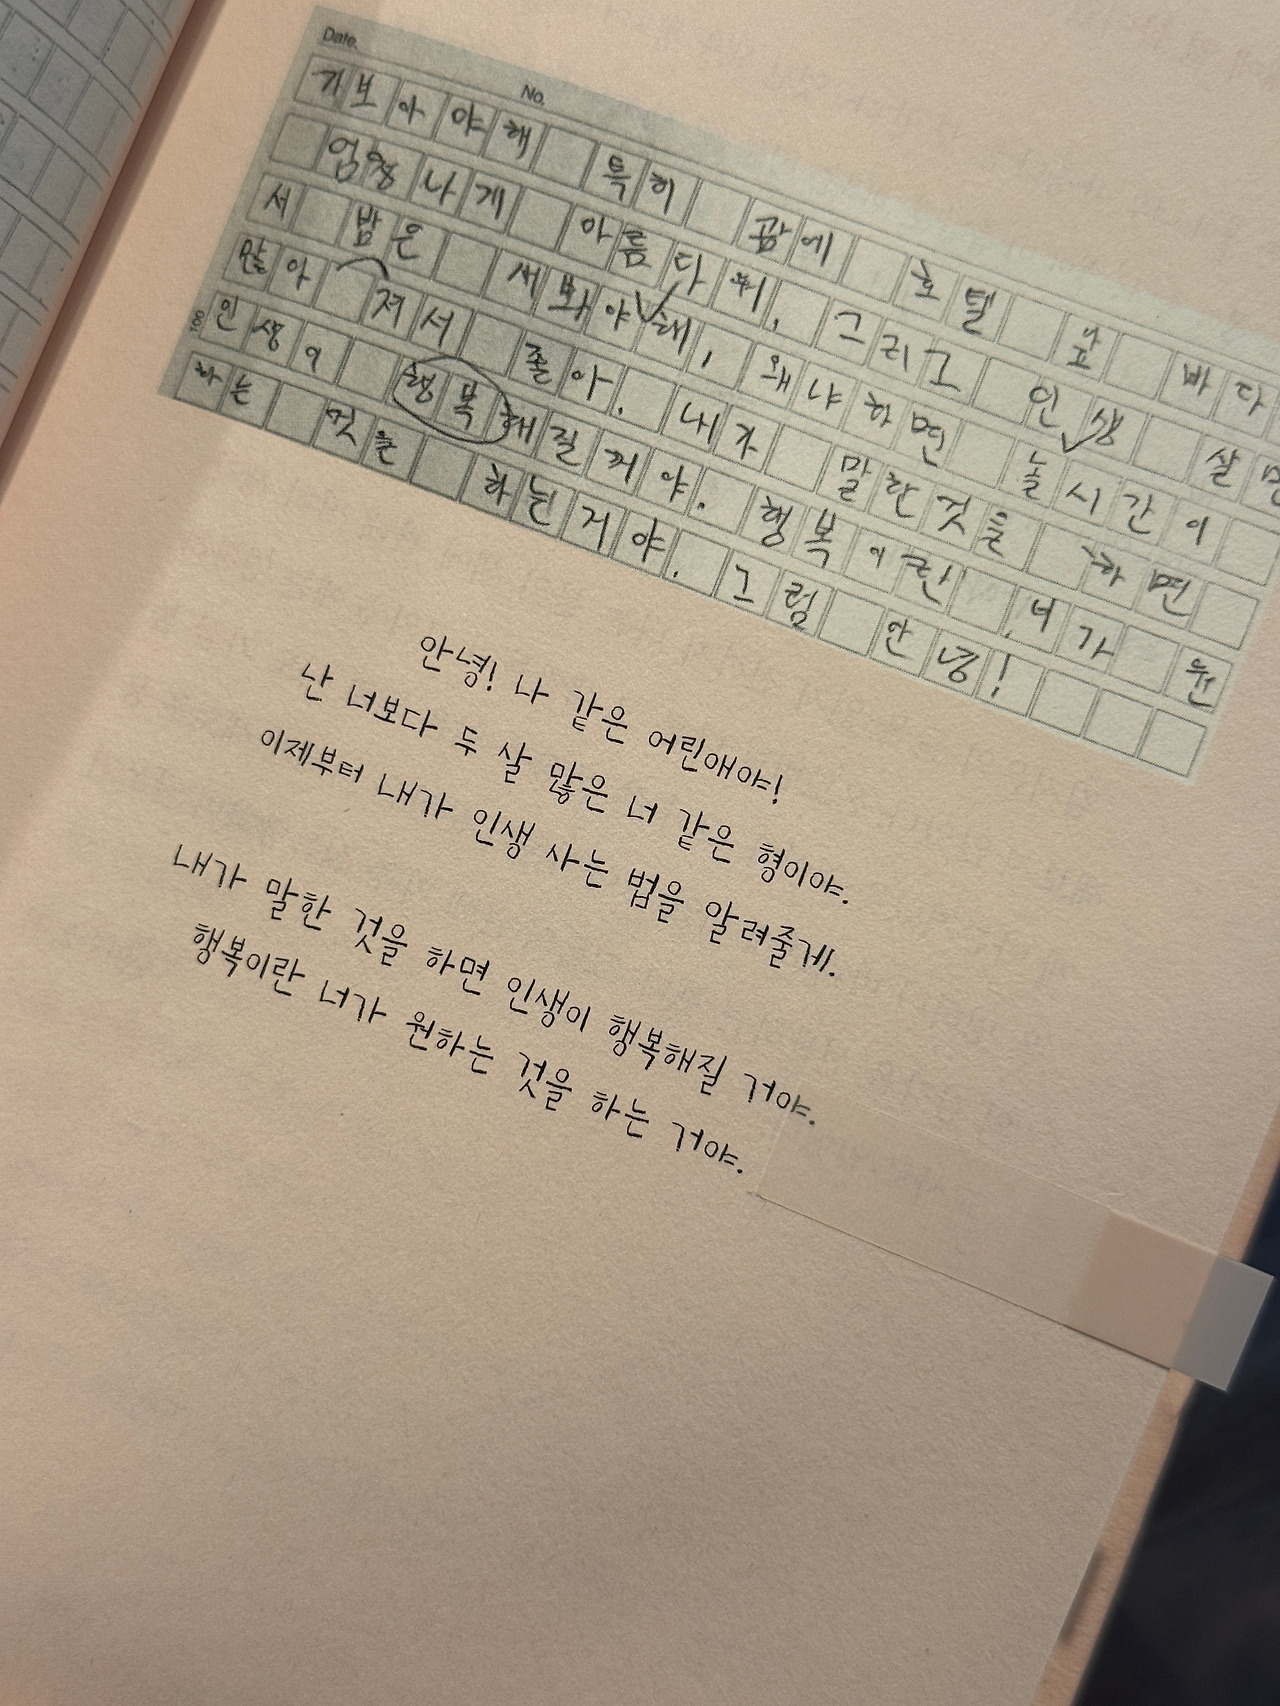 Date.
No.
기보아 야해 특히 괌에 호텔 앞 바다
엄청나게 아름다워, 그리고 인생 살면
서 밤은 새봐야해, 왜냐하면 놀시간이
많아 져서 좋아. 내가 말한것을 하면
인생이 행복해질꺼야. 행복이란 너가 원
하는 것을 하는거야. 그럼 안녕!
안녕! 나 같은 어린애야!
난 너보다 두 살 많은 너 같은 형이야.
이제부터 내가 인생 사는 법을 알려줄게.
내가 말한 것을 하면 인생이 행복해질 거야.
행복이란 너가 원하는 것을 하는 거야.